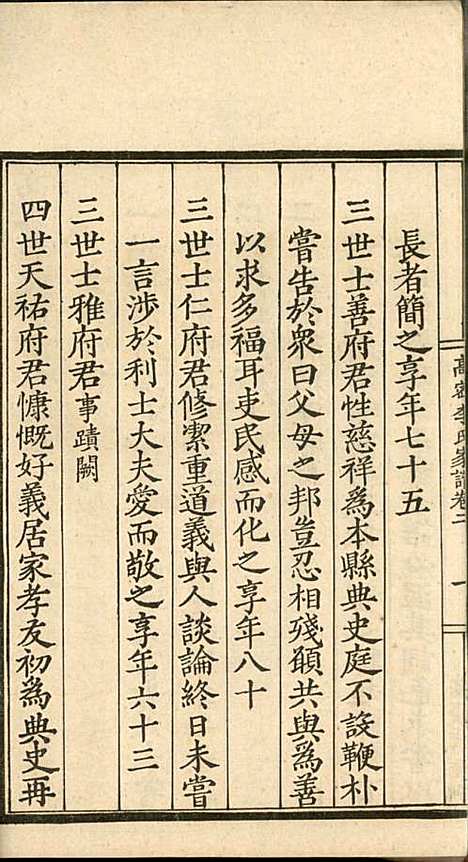 高密李氏家譜卷二
長者簡之享年七十五
三世士善府君性慈祥爲本縣典史庭不設鞭朴
嘗告於衆曰父母之邦豈忍相殘願共與爲善
以求多福耳吏民感而化之享年八十
三世士仁府君修潔重道義與人談論終日未嘗
一言涉於利士大夫愛而敬之享年六十三
三世士雅府君事蹟闕
四世天祐府君慷慨好義居家孝友初爲典史再